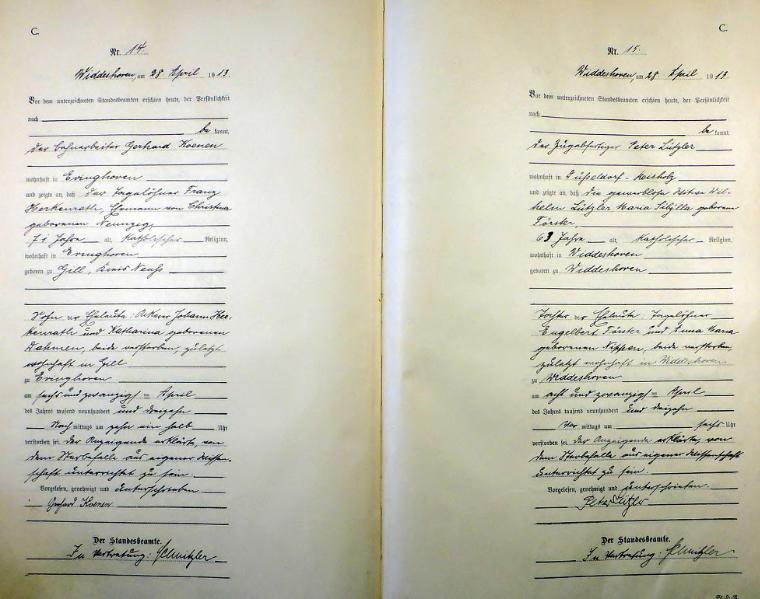 C.
Nr. 14.
Widdeshoven, am 28 April 1913
Vor dem unterzeichneten Standesbeamten erschien heute, der Persönlichkeit
nach
be kannt,
der Bahnarbeiter Gerhard Koenen
wohnhaft in Evinghoven
und zeigte an, daß der Tagelöhner Franz
Herkenrath, Ehemann von Christina
geborenen Nennzig,
71 Jahre alt, katholischer Religion,
wohnhaft in Evinghoven
geboren zu Gill, Kreis Neuss
Sohn der Eheleute: Ackerer Johann Her-
kenrath und Katharina geborenen
Dahmen, beide verstorben, zuletzt
wohnhaft in Gill
zu Evinghoven
am sechs und zwanzigsten April
des Jahres tausend neunhundert und dreizehn
Nach mittags um zehn ein halb Uhr
verstorben sei. Der Anzeigende erklärte, von
dem Sterbefalle aus eigener Wissen-
schaft unterrichtet zu sein.
Vorgelesen, genehmigt und unterschrieben
Gerhard Koenen
Der Standesbeamte.
In Vertretung:
C.
Nr. 15.
Widdeshoven, am 28 April 1913.
Vor dem unterzeichneten Standesbeamten erschien heute, der Persönlichkeit
nach
be kannt
der Zugabfertiger Peter Lützler
wohnhaft in Düsseldorf-Reisholz
und zeigte an, daß die gewerblose Witwe Wil-
helm Lützler Maria Sibylla geborene
Förster
63 Jahre alt, katholischer Religion,
wohnhaft in Widdeshoven
geboren zu Widdeshoven
Tochter der Eheleute Tagelöhner
Engelbert Förster und Anna Maria
geborenen beide verstorben
zuletzt wohnhaft in Widdeshoven
zu Widdeshoven
am acht und zwanzigsten April
des Jahres tausend neunhundert und dreizehn
Vor mittags um sechs Uhr
verstorben sei. Der Anzeigende erklärte, von
dem Sterbefalle aus eigener Wissenschaft
unterrichtet zu sein.
Vorgelesen, genehmigt und unterschrieben
Peter Lützler
Der Standesbeamte.
In Vertretung: